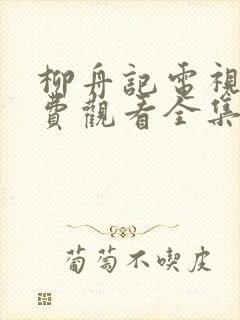 柳舟記電視
費觀看全集
葡萄不喫皮